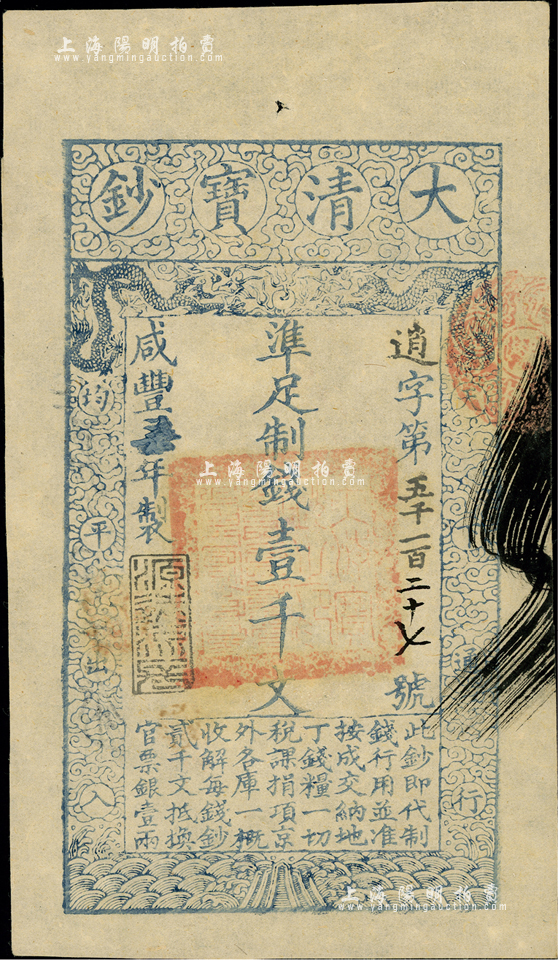 上海陽明拍賣
www.yangmingauction.com
大清寶鈔
逍字第五千一百二十七號
準足制錢壹千文
咸豐五年製
源遠流長
此鈔即代制
錢行用並准
按成交納地
丁錢糧一切
稅課捐項京
外各庫一概
收解每錢鈔
貳千文抵換
官票銀壹兩
天
通行
均平出入
上海陽明拍賣
www.yangmingauction.com
上海陽明拍賣
www.yangmingauction.com